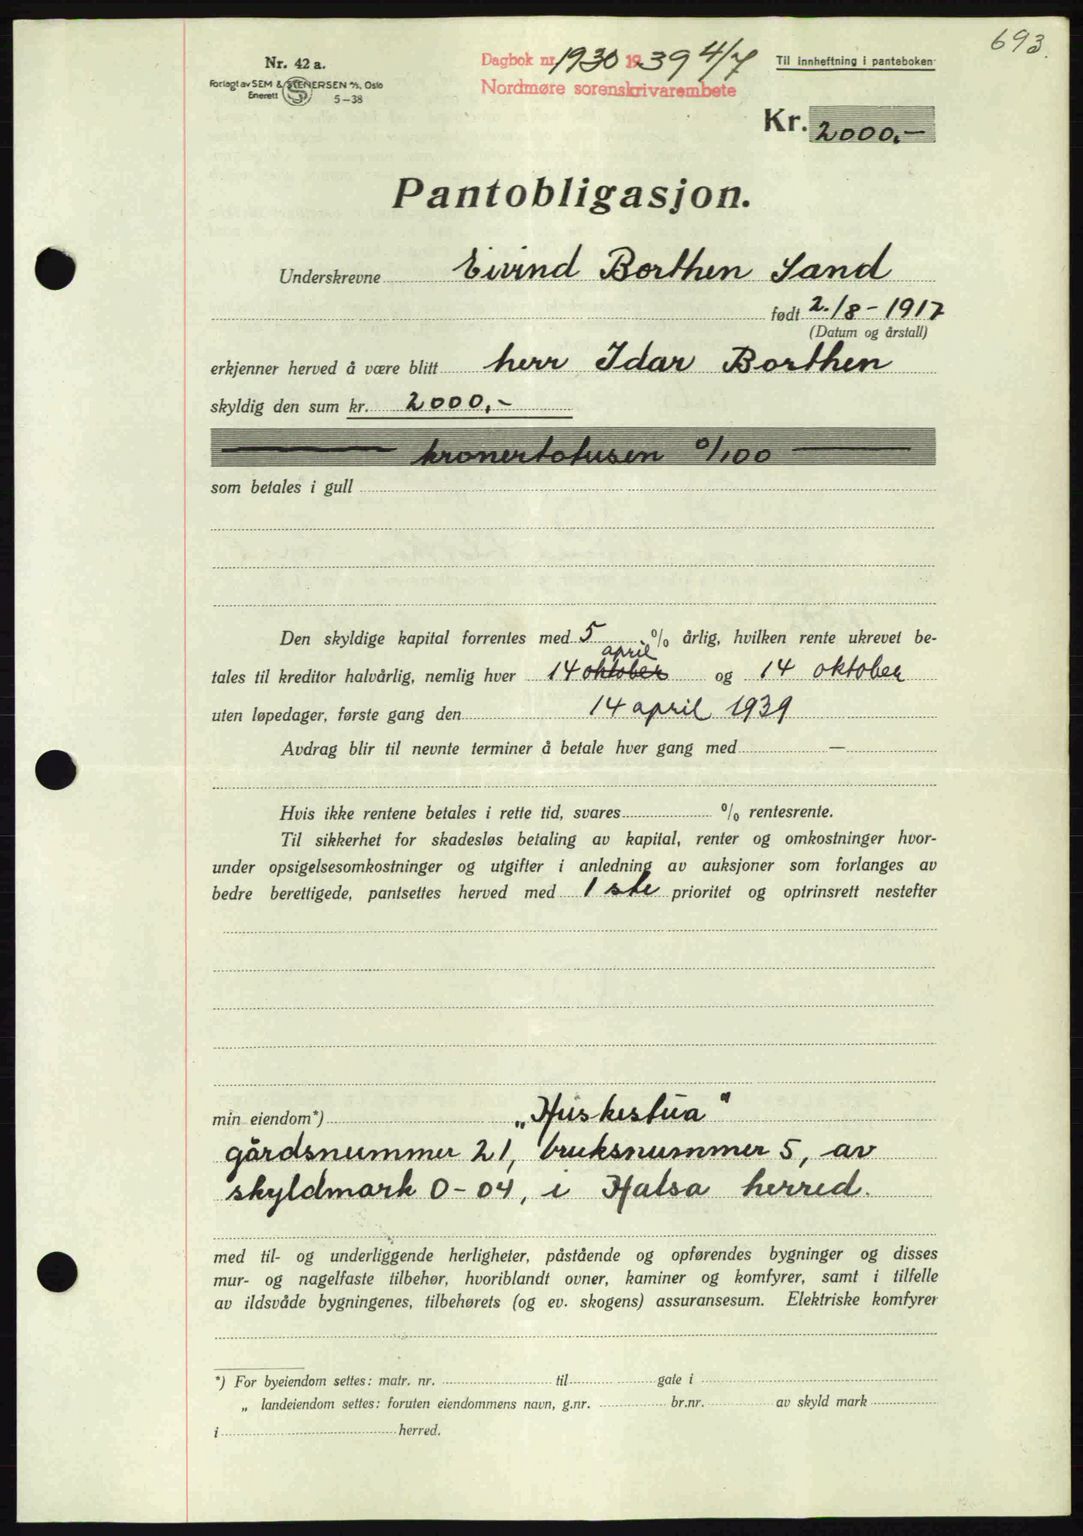 693.
Nr. 42 a.
Forlagt av SEM & STENERSEN A/S, Oslo
Enerett 5-38
Dagbok nr. 1930 1939 4/7
Nordmøre sorenskrivarembete
Til innheftning i panteboken
Kr. 2000,-
Pantobligasjon.
Underskrevne Eivind Borthen Sand
født 2./8-1917
(Datum og årstall)
erkjenner herved å være blitt herr Idar Borthen
skyldig den sum kr. 2000,-
kronertotusen 0/100
som betales i gull
Den skyldige kapital forrentes med 5 % årlig, hvilken rente ukrevet be-
april
tales til kreditor halvårlig, nemlig hver 14 oktober og 14 oktober
uten løpedager, første gang den 14 april 1939
Avdrag blir til nevnte terminer å betale hver gang med —
Hvis ikke rentene betales i rette tid, svares % rentesrente.
Til sikkerhet for skadesløs betaling av kapital, renter og omkostninger hvor-
under opsigelsesomkostninger og utgifter i anledning av auksjoner som forlanges av
bedre berettigede, pantsettes herved med 1ste prioritet og optrinsrett nestefter
min eiendom*) "Huskestua"
gårdsnummer 21, bruksnummer 5, av
skyldmark 0-04, i Halsa herred.
med til- og underliggende herligheter, påstående og opførendes bygninger og disses
mur- og nagelfaste tilbehør, hvoriblandt ovner, kaminer og komfyrer, samt i tilfelle
av ildsvåde bygningenes, tilbehørets (og ev. skogens) assuransesum. Elektriske komfyrer
*) For byeiendom settes: matr. nr. til gate i
„ landeiendom settes: foruten eiendommens navn, g.nr. br.nr. av skyld mark
i herred.